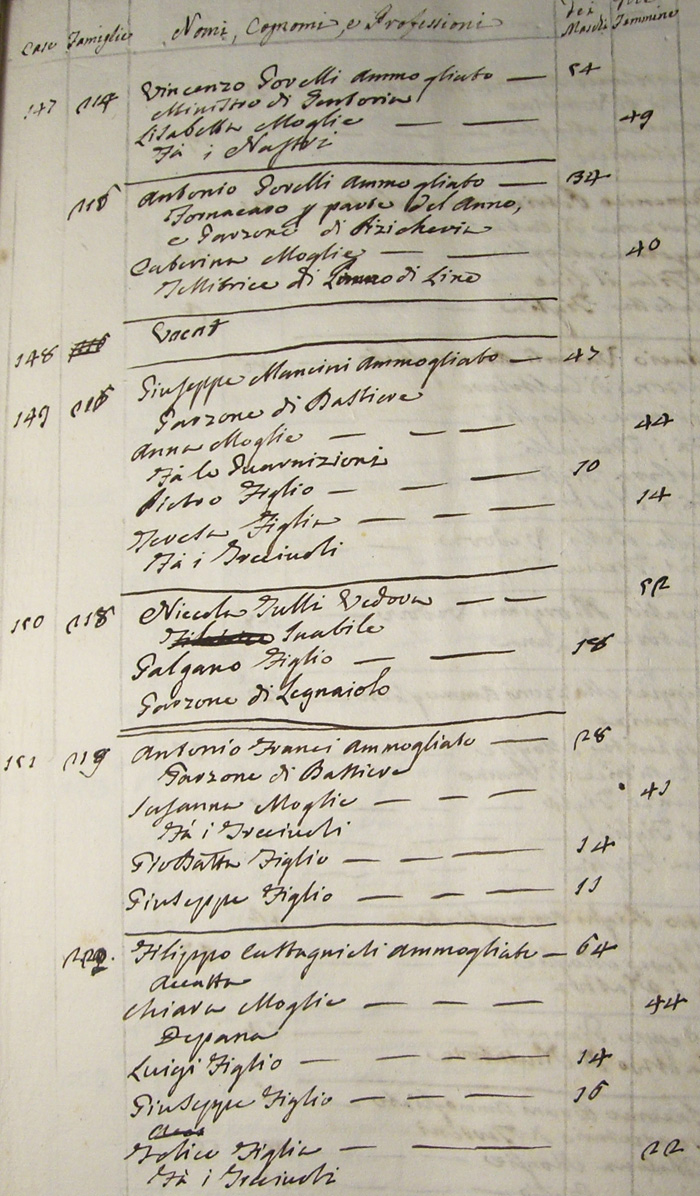 Case Famiglie Nomi, Cognomi, e Professioni dei Maschi Femmine
147 214 Vincenzo Porelli Ammogliato — 54
Ministro di
Lisabetta Moglie — — 49
Fà i Nastri
215 Antonio Porelli Ammogliato — 34
Fornaciaro p parte del Anno,
e Garzone di Pizicheria
Caterina Moglie — — 40
Tessitrice di di Lino
148 Vacat
149 216 Giuseppe Mancini Ammogliato — 47
Garzone di Battiere
Anna Moglie — — — 44
Fà le Guarnizioni
Pietro Figlio — — — 10
Teresa Figlia — — — 14
Fà i Trecciuoli
150 218 Niccola Tulli Vedova — — 52
Inabile
Galgano Figlio — — 18
Garzone di Legnaiolo
151 219 Antonio Franci Ammogliato — 28
Garzone di Battiere
Susanna Moglie — — — 41
Fà i Trecciuoli
Gio Batta Figlio — — — 14
Giuseppe Figlio — — — 11
Filippo Ammogliato — 64
Accatta
Chiara Moglie — — — 44
Depana
Luigi Figlio — — — 14
Giuseppe Figlio — — — 16
Felice Figlia — — 22
Fà i Trecciuoli